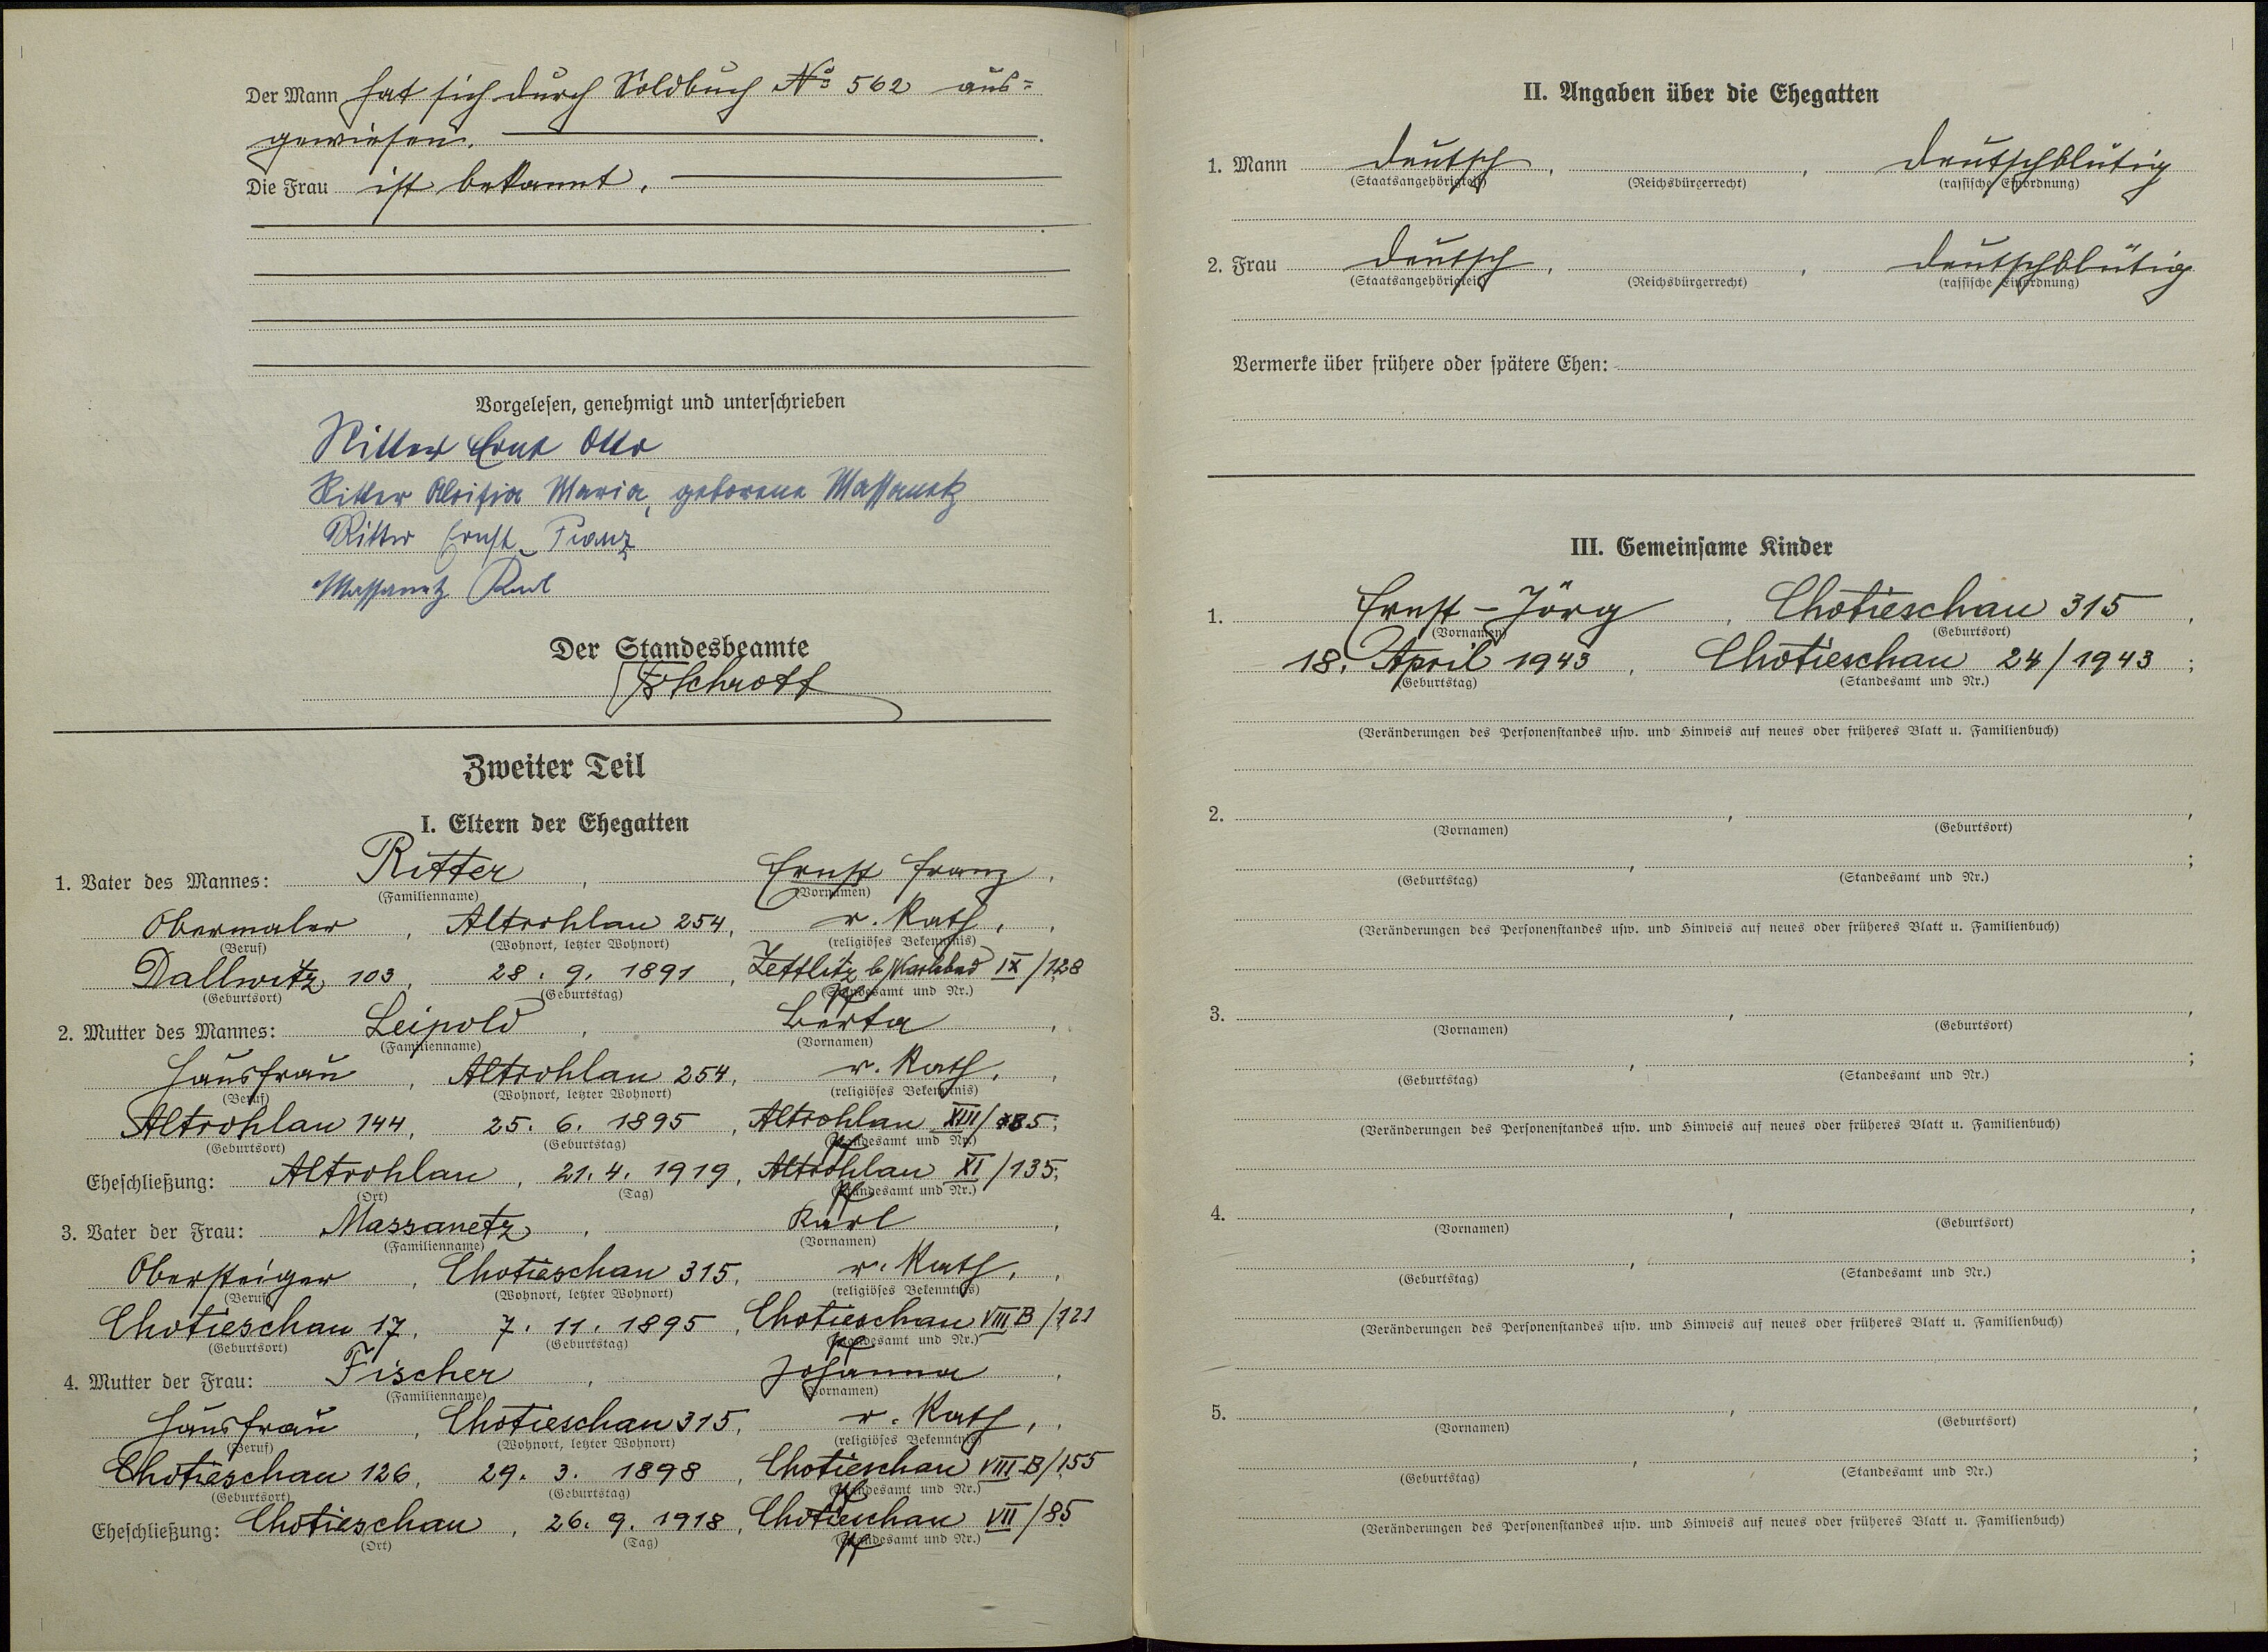 Der Mann hat sich durch Soldbuch No 562 aus=
gewiesen.
Die Frau ist bekannt.
Vorgelesen, genehmigt und unterschrieben
Ritter Ernst Otto
Ritter Aloisia Maria, geborene Massanetz
Ritter Ernst Franz
Massanetz Karl
Der Standesbeamte
Schrott
Zweiter Teil
I. Eltern der Ehegatten
1. Vater des Mannes: Ritter, Ernst Franz,
(Familienname) (Vornamen)
Obermaler, Altrohlau 254, r. kath.,
(Beruf) (Wohnort, letzter Wohnort) (religiöses Bekenntnis)
Dallwitz 103, 28. 9. 1891, Zettlitz b/Karlsbad IX/128
(Geburtsort) (Geburtstag) (Standesamt und Nr.)
2. Mutter des Mannes: Leipold, Berta,
(Familienname) (Vornamen)
Hausfrau, Altrohlau 254, r. kath.,
(Beruf) (Wohnort, letzter Wohnort) (religiöses Bekenntnis)
Altrohlau 144, 25. 6. 1895, Altrohlau XIII/85;
(Geburtsort) (Geburtstag) (Standesamt und Nr.)
Eheschließung: Altrohlau, 21. 4. 1919, Altrohlau XI/135;
(Ort) (Tag) (Standesamt und Nr.)
3. Vater der Frau: Massanetz, Karl,
(Familienname) (Vornamen)
Obersteiger, Chotieschau 315, r. kath.,
(Beruf) (Wohnort, letzter Wohnort) (religiöses Bekenntnis)
Chotieschau 17, 7. 11. 1895, Chotieschau VIII B/121
(Geburtsort) (Geburtstag) (Standesamt und Nr.)
4. Mutter der Frau: Fischer, Johanna,
(Familienname) (Vornamen)
Hausfrau, Chotieschau 315, r. kath.,
(Beruf) (Wohnort, letzter Wohnort) (religiöses Bekenntnis)
Chotieschau 126, 29. 3. 1898, Chotieschau VIII B/155
(Geburtsort) (Geburtstag) (Standesamt und Nr.)
Eheschließung: Chotieschau, 26. 9. 1918, Chotieschau VII/85
(Ort) (Tag) (Standesamt und Nr.)
II. Angaben über die Ehegatten
1. Mann deutsch, , deutschblütig
(Staatsangehörigkeit) (Reichsbürgerrecht) (rassische Einordnung)
2. Frau deutsch, , deutschblütig
(Staatsangehörigkeit) (Reichsbürgerrecht) (rassische Einordnung)
Vermerke über frühere oder spätere Ehen:
III. Gemeinsame Kinder
1. Ernst-Jörg, Chotieschau 315,
(Vornamen) (Geburtsort)
18. April 1943, Chotieschau 24/1943;
(Geburtstag) (Standesamt und Nr.)
(Veränderungen des Personenstandes usw. und Hinweis auf neues oder früheres Blatt u. Familienbuch)
2. , ,
(Vornamen) (Geburtsort)
, ;
(Geburtstag) (Standesamt und Nr.)
(Veränderungen des Personenstandes usw. und Hinweis auf neues oder früheres Blatt u. Familienbuch)
3. , ,
(Vornamen) (Geburtsort)
, ;
(Geburtstag) (Standesamt und Nr.)
(Veränderungen des Personenstandes usw. und Hinweis auf neues oder früheres Blatt u. Familienbuch)
4. , ,
(Vornamen) (Geburtsort)
, ;
(Geburtstag) (Standesamt und Nr.)
(Veränderungen des Personenstandes usw. und Hinweis auf neues oder früheres Blatt u. Familienbuch)
5. , ,
(Vornamen) (Geburtsort)
, ;
(Geburtstag) (Standesamt und Nr.)
(Veränderungen des Personenstandes usw. und Hinweis auf neues oder früheres Blatt u. Familienbuch)